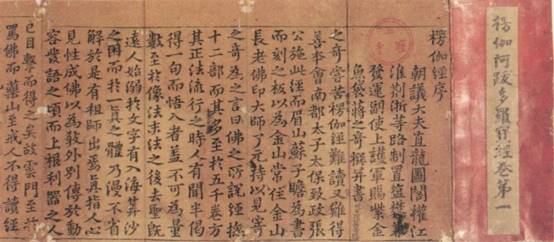 楞伽阿跋多羅寶經卷第一
楞伽經序
朝議大夫直龍圖閣權江
淮荊浙等路制置鹽礬兼
發運副使上護軍賜紫金
魚袋蔣之奇撰并書
之奇嘗苦楞伽經難讀又難得
善本會南都太子太保致政張
公施此經而眉山蘇子瞻為書
而刻之板以為金山常住金山
長老佛印大師了元持以見寄
之奇為之言曰佛之所說經總
十二部而其多至於五千卷方
其正法流行之時人有聞半偈
得一句而悟入者蓋不可為量
數至於像法末法之後去聖既
遠人始溺於文字有入海筭沙
之困而於一真之體乃漫不省
解於是有祖師出焉直指人心
見性成佛以為教外別傳於動
容發語之頃而上根利器之人
已目擊而得之矣故雲門至於
罵佛而藥山至戒人不得讀經